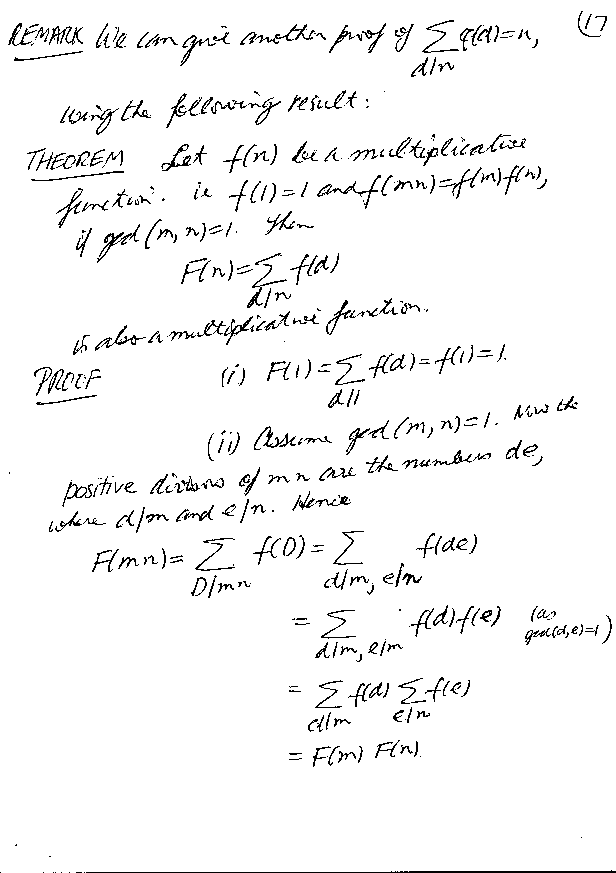 REMARK We can give another proof of ∑ φ(d)=n, (17
d|n
using the following result:
THEOREM Let f(n) be a multiplicative
function. ie f(1)=1 and f(mn)=f(m)f(n),
if gcd(m,n)=1. Then
F(n)=∑ f(d)
d|n
is also a multiplicative function.
PROOF (i) F(1)=∑ f(d)=f(1)=1.
d|1
(ii) Assume gcd(m,n)=1. Now the
positive divisors of mn are the numbers de,
where d|m and e|n. Hence
F(mn)= ∑ f(D)= ∑ f(de)
D|mn d|m, e|n
= ∑ f(d)f(e) (as gcd(d,e)=1)
d|m, e|m
= ∑ f(d) ∑ f(e)
d|m e|n
= F(m) F(n).